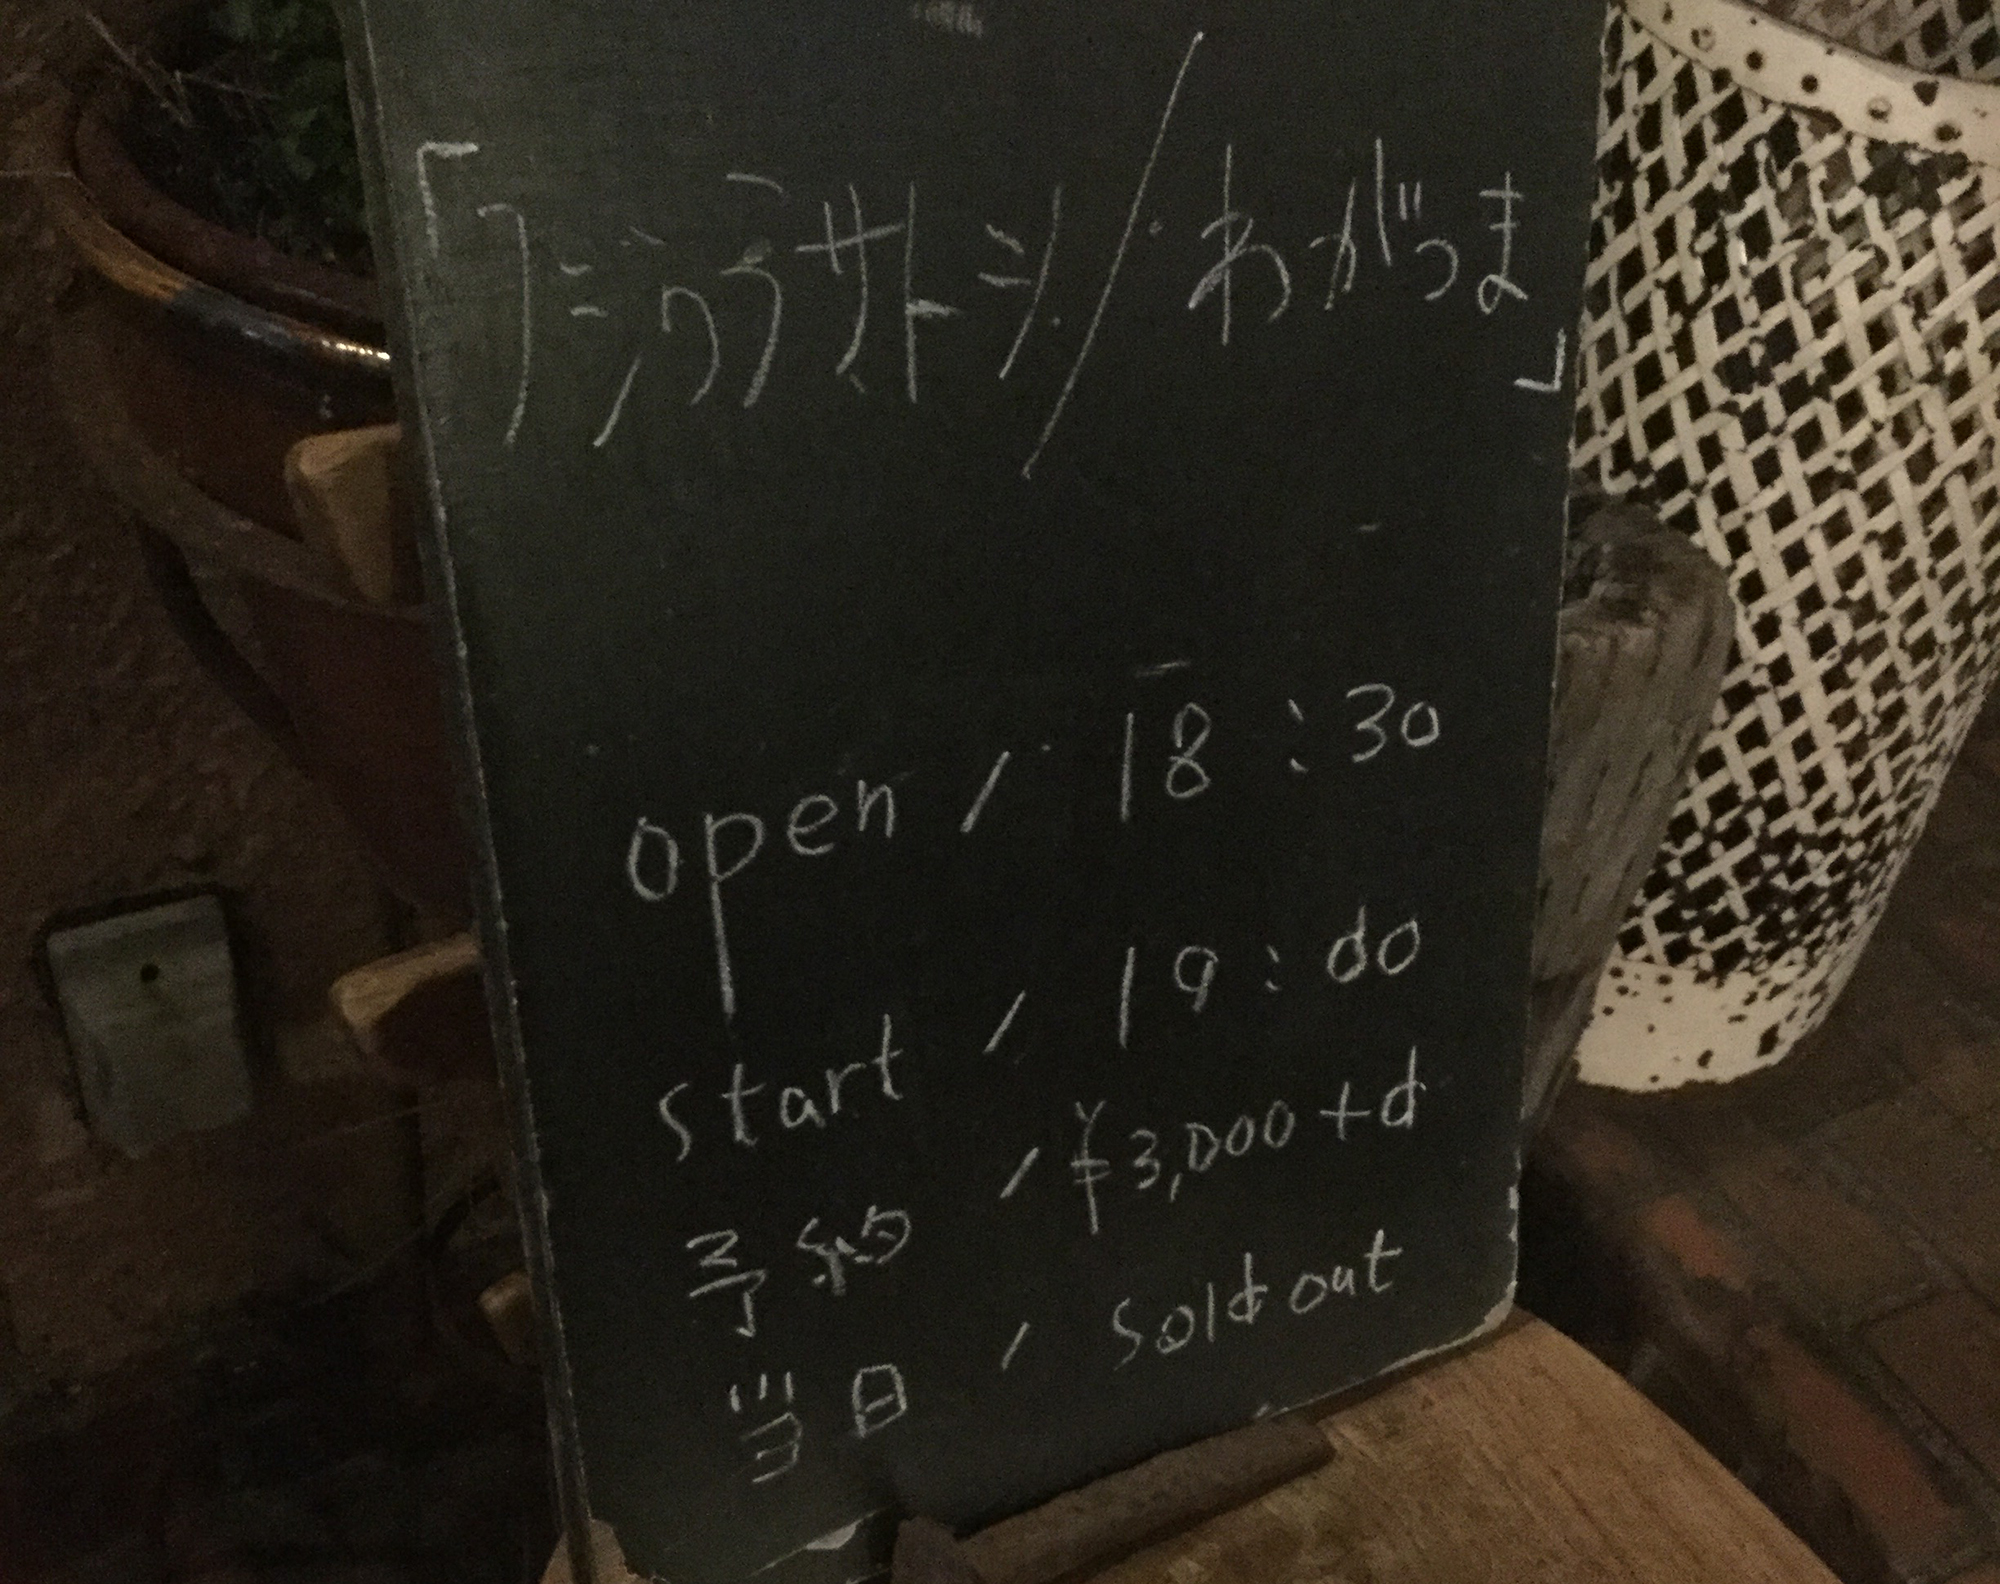 「フジワラサトシ/わがつま」
open / 18:30
start / 19:00
予約 / ¥3,000+d
当日 / Sold out